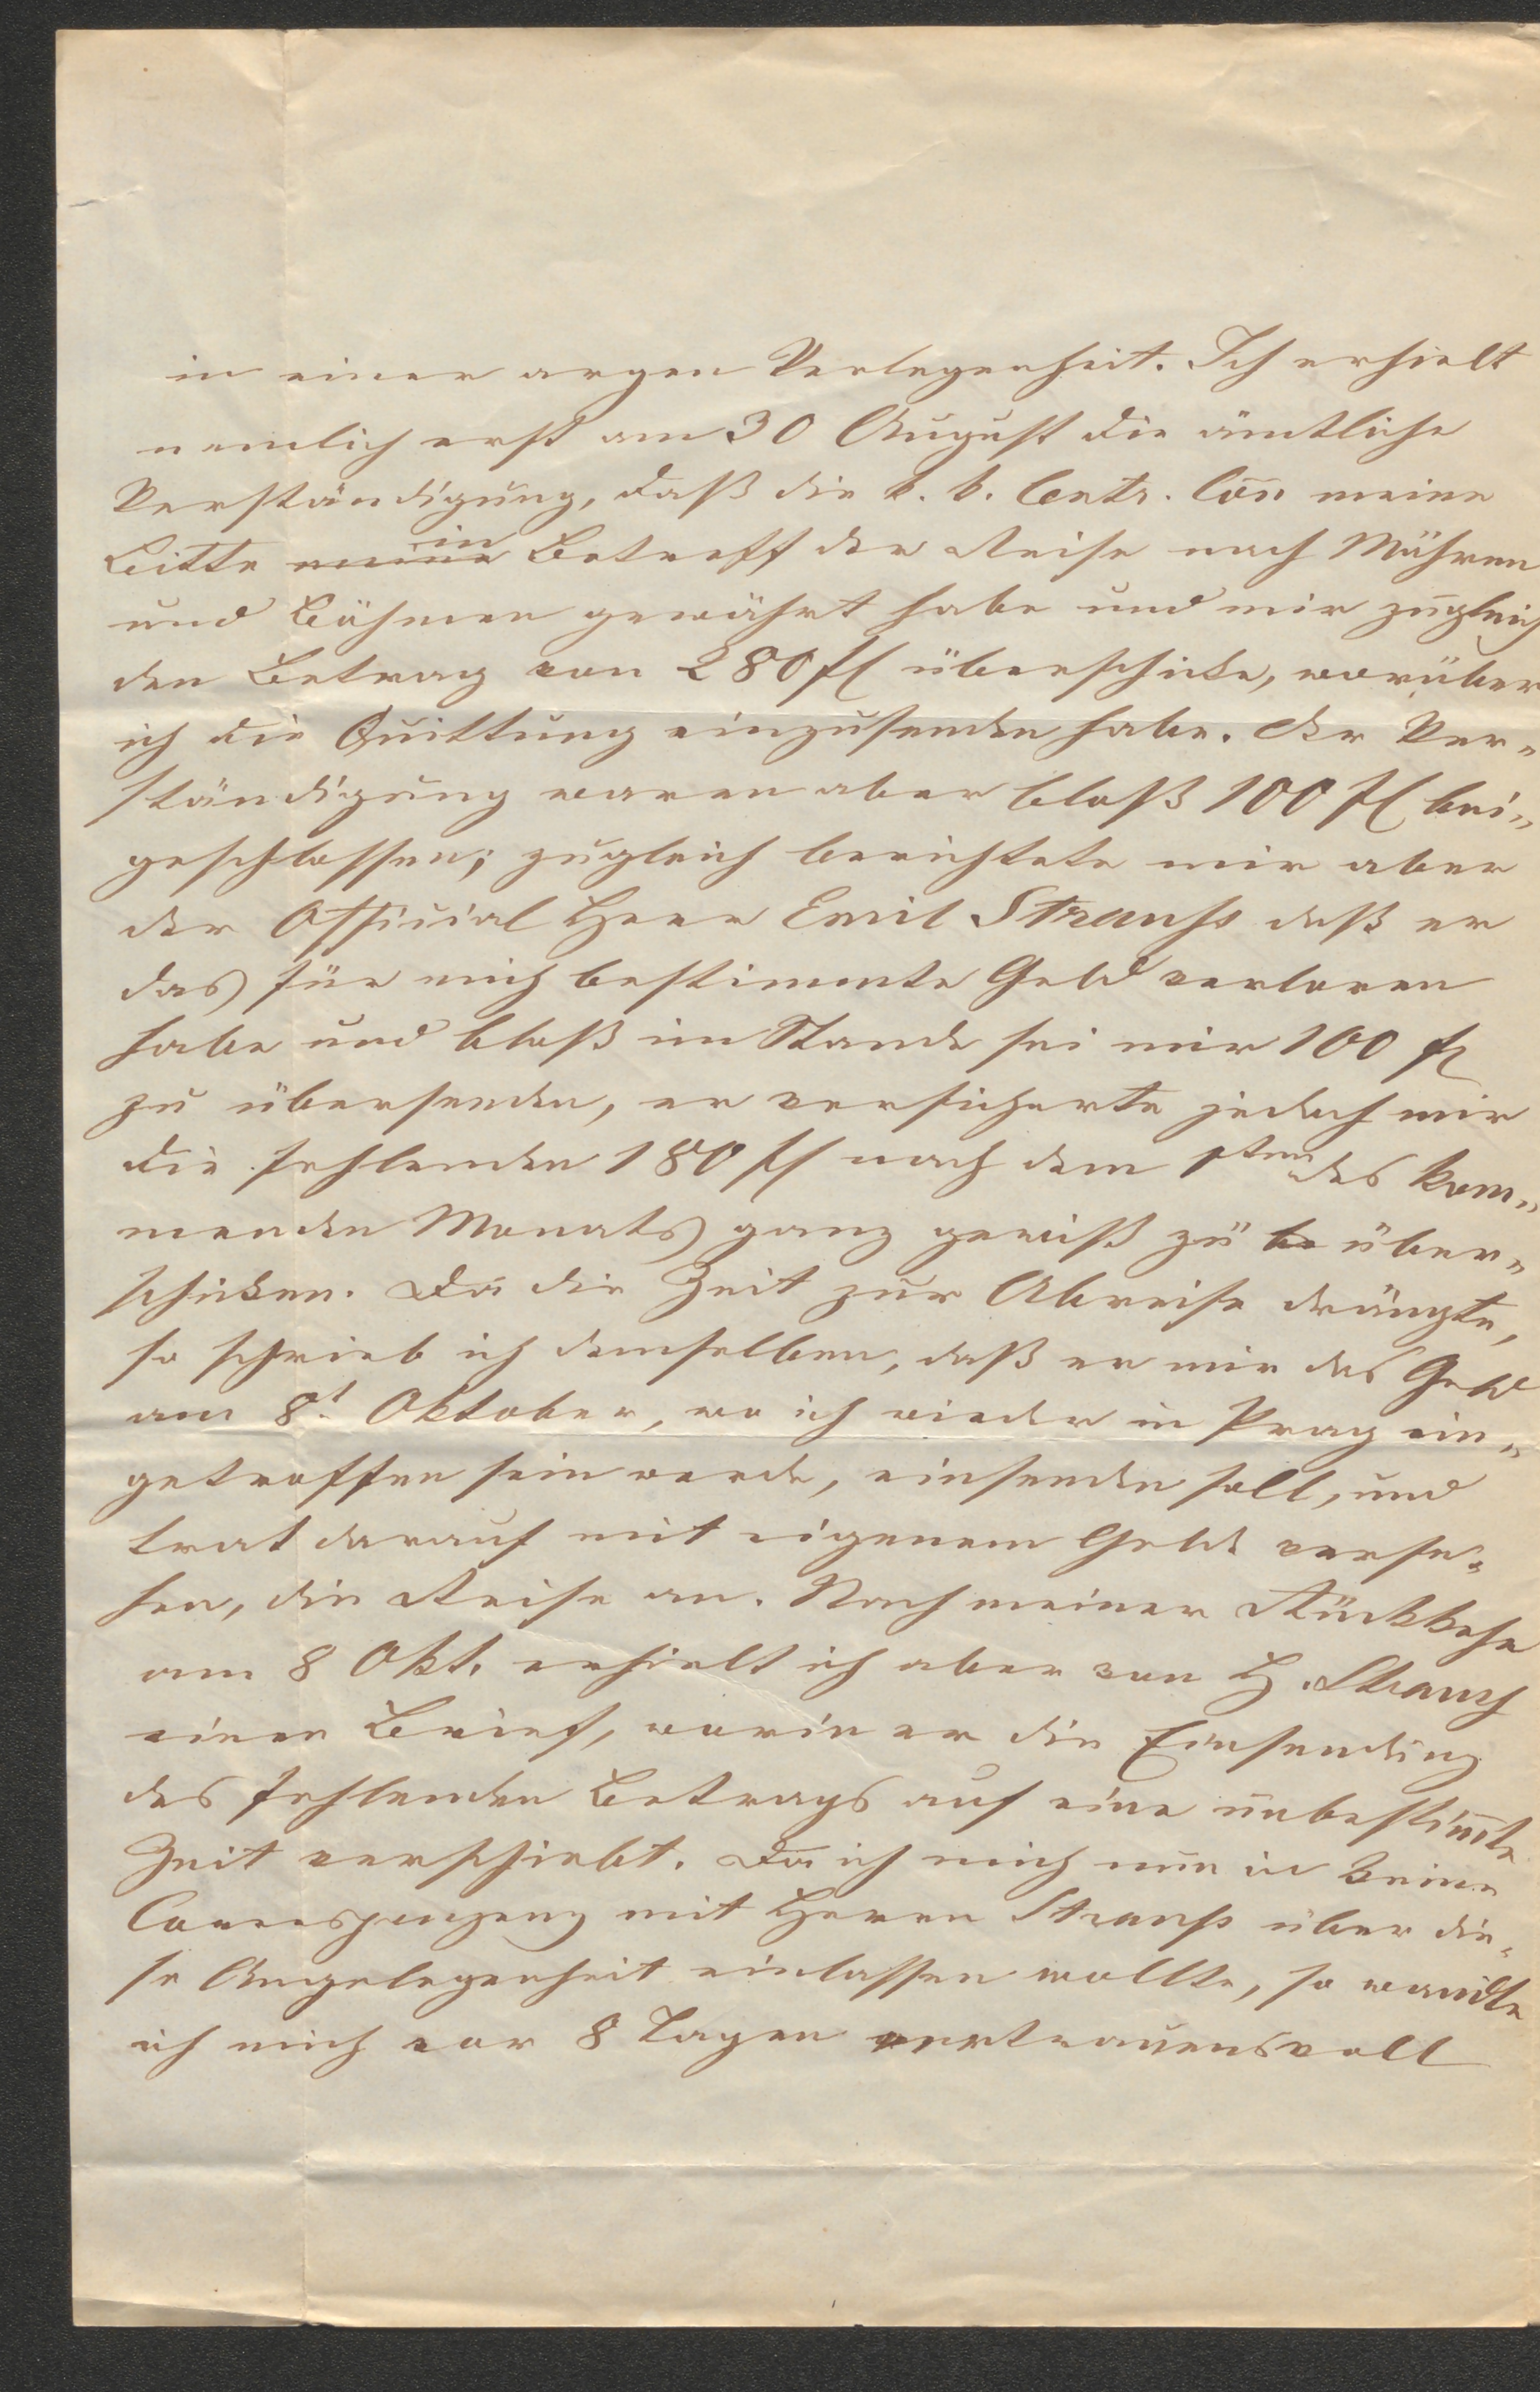 in einer argen Verlegenheit. Ich erhielt
nemlich erst am 30 August die ämtliche
Verständigung, daß die k. k. Centr. Coṁ meine
Bitte in Betreff der Reise nach Mähren
und Böhmen gewährt habe und mir zugleich
den Betrag von 280 fl überschicke, worüber
ich die Quittung einzusenden habe. Der Ver„
ständigung waren aber bloß 100 fl bei„
geschlossen; zugleich berichtete mir aber
der Official Herr Emil Strauss daß er
das für mich bestimmte Geld verloren
habe und bloß im Stande sei mir 100 fl
zu übersenden, er versicherte jedoch mir
die fehlenden 180 fl nach dem 1ten des kom„
menden Monats ganz gewiß zu be über„
schicken. Da die Zeit zur Abreise drängte,
so schrieb ich demselben, daß er mir das Geld
am 8t Oktober, wo ich wieder in Prag ein„
getroffen sein werde, einsenden soll, und
trat darauf mit eigenem Gelde verse„
hen, die Reise an. Nach meiner Rückkehr
am 8 Okt. erhielt ich aber von H. Strauss
einen Brief, worin er die Einsendung
des fehlenden Betrags auf eine unbestim̄te
Zeit verschiebt. Da ich mich nun in keine
mit Herrn Strauss über die„
se Angelegenheit einlassen wollte, so wandte
ich mich vor 8 Tagen vertrauensvoll